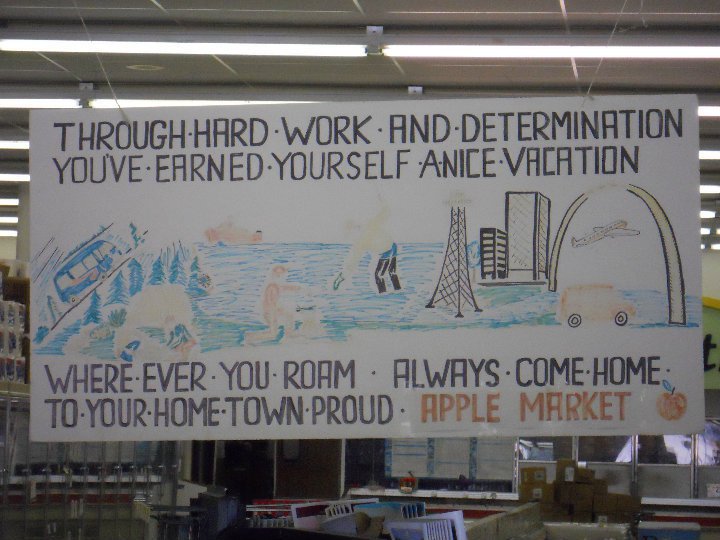 THROUGH·HARD·WORK·AND·DETERMINATION
YOU'VE·EARNED·YOURSELF·A·NICE·VACATION
WHERE·EVER·YOU·ROAM·ALWAYS·COME·HOME·
TO·YOUR·HOME·TOWN·PROUD·APPLE MARKET